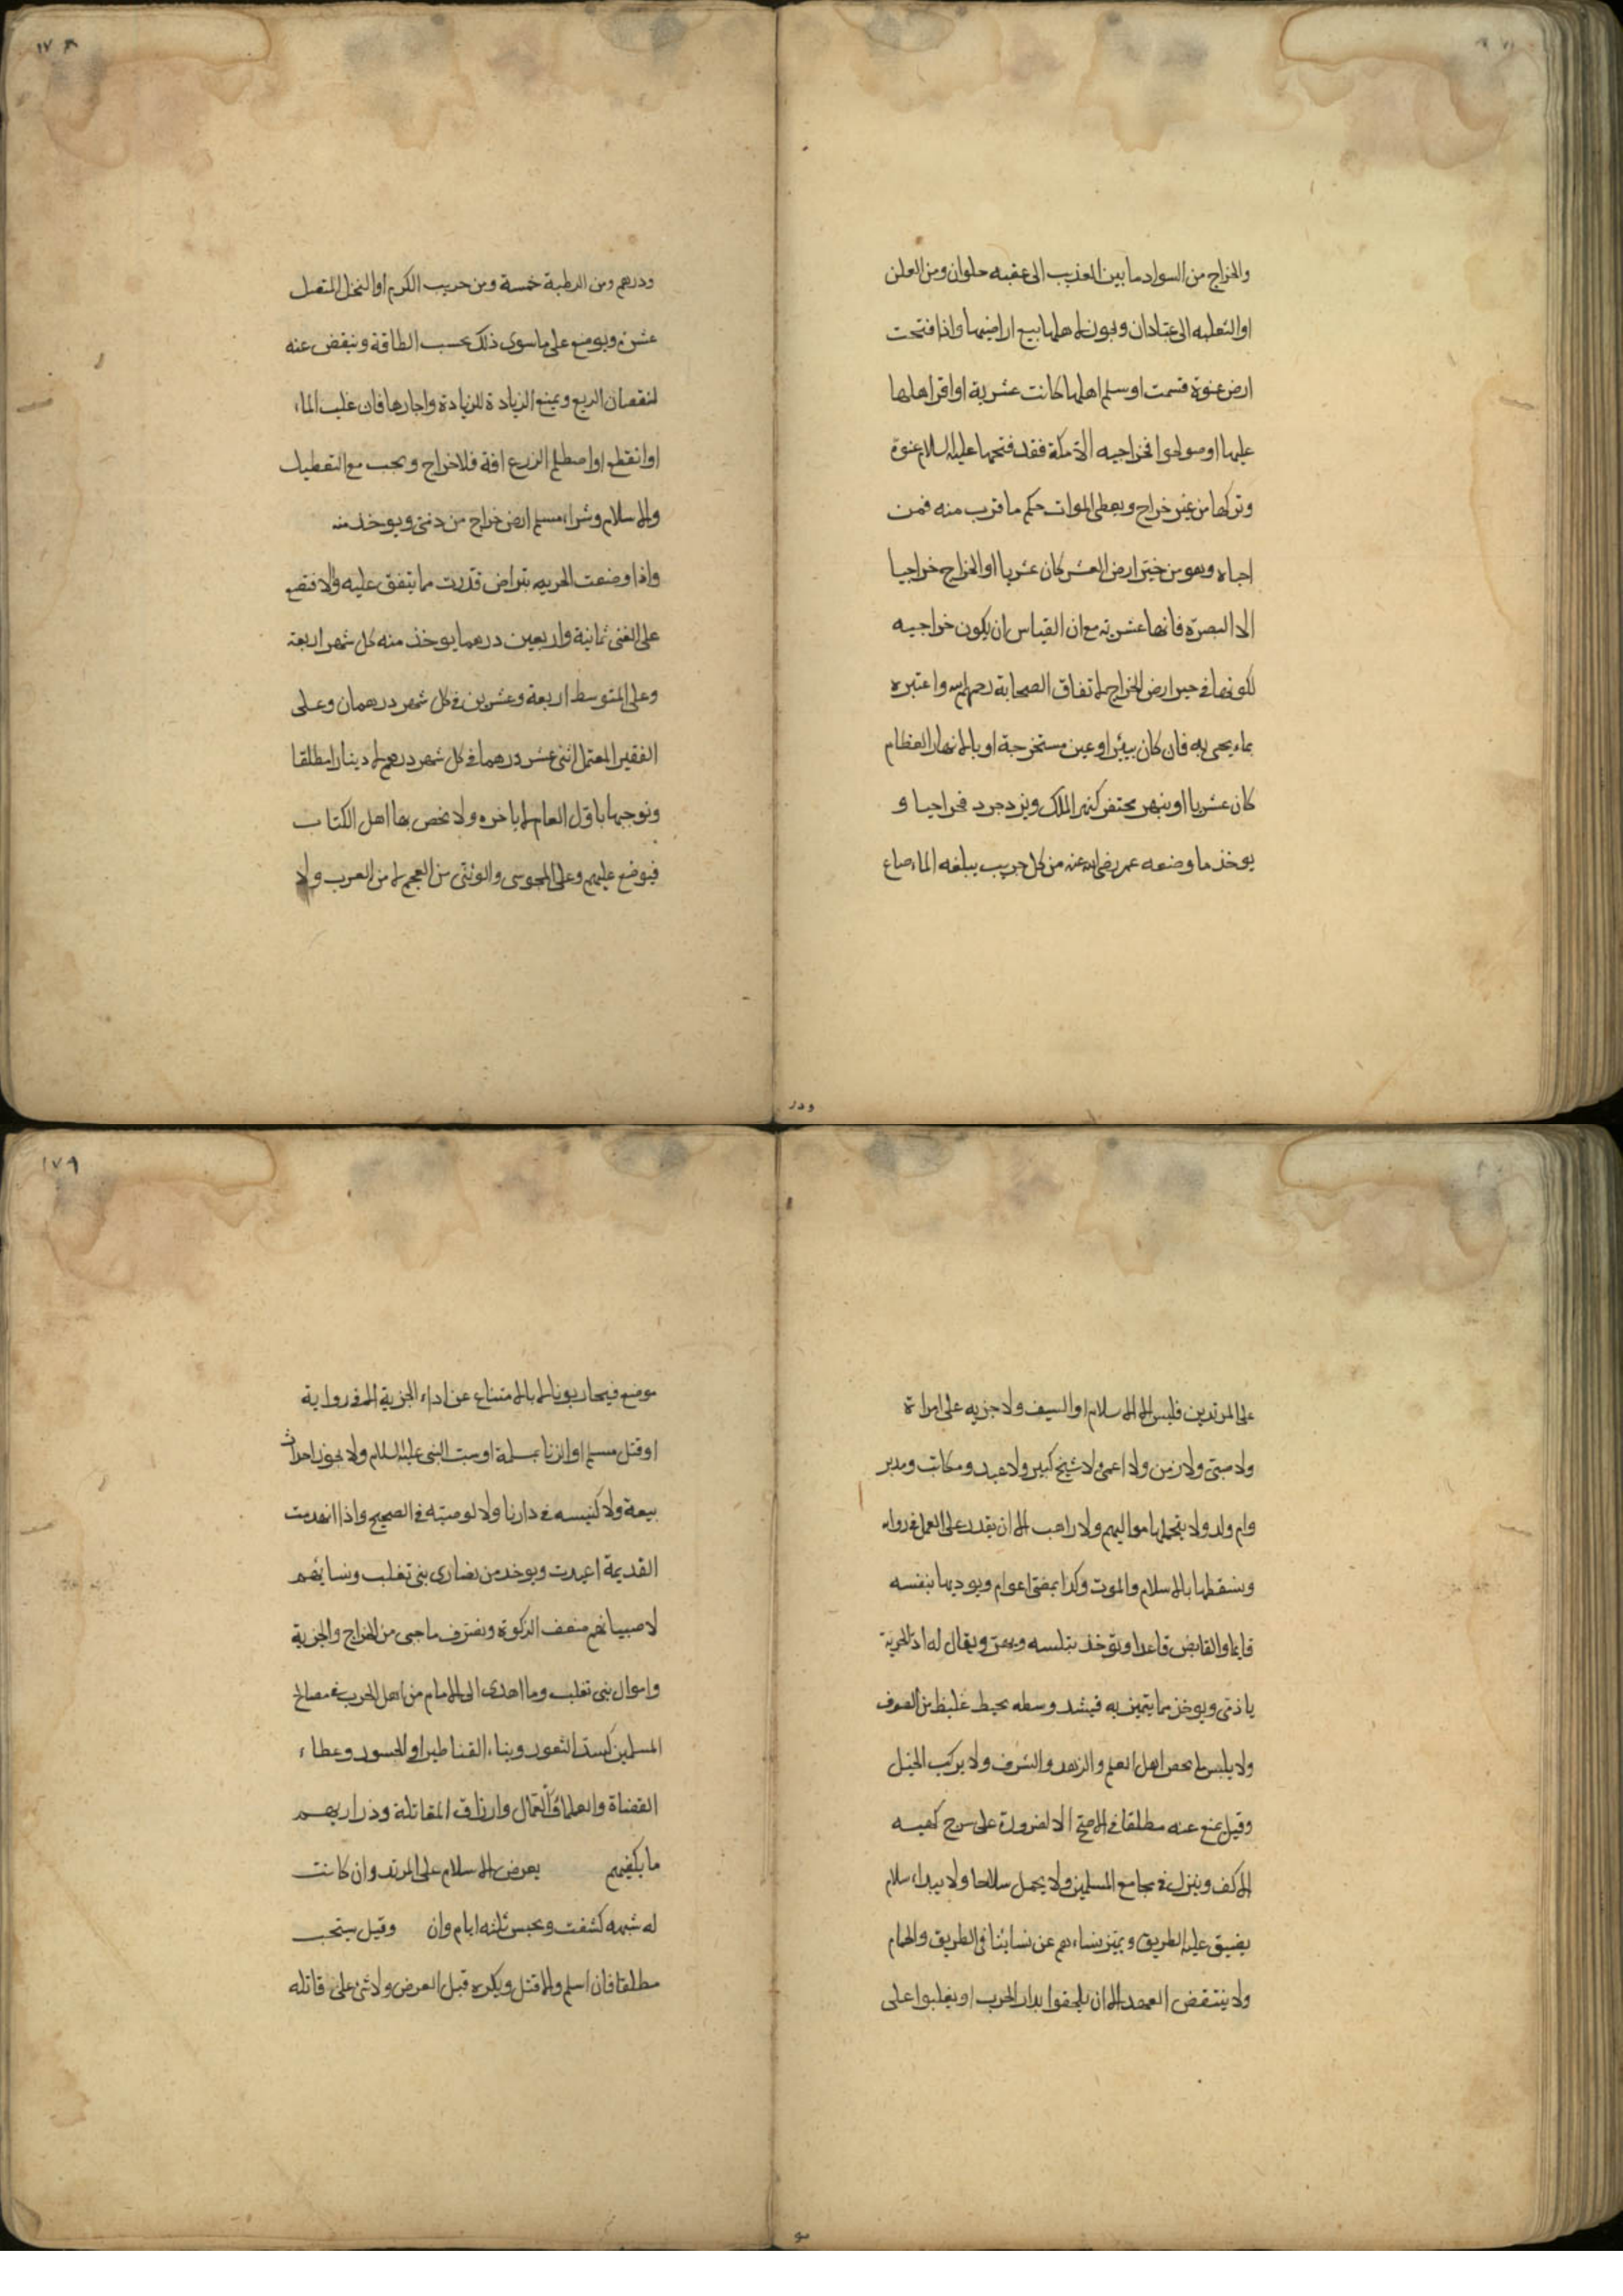 والخراج من السواد ما بين العذيب الى عقبه حلوان ومن العلث
او الثعلبه الى عبادان ويجوز لاهلها بيع اراضيها واذا فتحت
ارض عنوة قسمت او سلم اهلها كانت عشرية او اقر اهلها
عليها او صولحوا فخراجيه الا مكة فقد فتحها عليه السلام عنوة
وتركها من غير خراج ويعطى الموات حكم ما قرب منه فمن
احياه وهو من حيز ارض العشر كان عشريا او الخراج خراجيا
الا البصرة فانها عشرية مع ان القياس ان يكون خراجيه
لكونها في حيز ارض الخراج لاتفاق الصحابة رحمهم الله واعتبره
بماء يحيى به فان كان ببئر او عين مستخرجة او بالانهار العظام
كان عشريا او بنهر يحتفر كنهر الملك ويزدجرد فخراجيا و
يوخذ ما وضعه عمر رضى الله عنه من كل جريب يبلغه الماء صاع
ودر
١٧٨
ودرهم ومن الرطبة خمسة ومن جريب الكرم او النخل المتصل
عشرة ويوضع على ما سوى ذلك بحسب الطاقة وينقص عنه
لنقصان الريع ويمنع الزيادة للزيادة واجازها فان غلب الماء
او انقطع او اصطلم الزرع افة فلا خراج ويجب مع التعطيل
والاسلام وشراء مسلم ارض خراج من ذمى ويوخذ منه
واذا وضعت الجزيه بتراض قدرت مما يتفق عليه والا فتضع
على الغنى ثمانية واربعين درهما يوخذ منه كل شهر اربعة
وعلى المتوسط اربعة وعشرين في كل شهر درهمان وعلى
الفقير المعتمل اثنى عشر درهما في كل شهر درهم لا دينارا مطلقا
ونوجبها باول العام لا باخره ولا نخص بها اهل الكتاب
فيوضع عليهم وعلى المجوسى والوثنى من العجم لا من العرب ولا
على المرتدين فليس الا الاسلام او السيف ولا جزيه على امراة
ولا صبى ولا زمن ولا اعمى ولا شيخ كبير ولا عبد ومكاتب ومدبر
وام ولد ولا يتحملها مواليهم ولا راهب الا ان يقدر على العمل في رواية
ونسقطها بالاسلام والموت وكذا بمضى اعوام ويوديها بنفسه
قايما والقابض قاعدا وتوخذ بتلبيبه ويهز ويقال له اد الجزية
يا ذمى ويوخذ مما يتميز به فيشد وسطه بخيط غليظ من الصوف
ولا يلبس ما يخص اهل العلم والزهد والشرف ولا يركب الخيل
وقيل يمنع عنه مطلقا في الاصح الا لضرورة على سرج كهيئه
الاكف وينزل في مجامع المسلمين ولا يحمل سلاحا ولا يبداء سلام
يضيق عليه الطريق ويميز نساءهم عن نسائنا في الطريق والحمام
ولا ينتقض العهد الا ان يلحقوا بدار الحرب او يغلبوا على
مو
١٧٩
موضع فيحاربوننا لا بالامتناع عن اداء الجزية الا في رواية
او قتل مسلم او الزنا بمسلمة او سب النبى عليه السلام ولا يجوز احداث
بيعة ولا كنيسه في دارنا ولا لو صيته في الصحيح واذا انهدمت
القديمة اعيدت ويوخذ من نصارى بنى تغلب ونسائهم
لا صبيانهم ضعف الزكوة ونصرف ما جبى من الخراج والجزية
واموال بنى تغلب وما اهدى الى الامام من اهل الحرب في مصالح
المسلمين كسد الثغور وبناء القناطير او الجسور وعطاء
القضاة والعلماء والعمال وارزاق المقاتلة وذراريهم
ما يكفيهم يعرض الاسلام على المرتد وان كانت
له شبهه كشفت ويحبس ثلثه ايام وان وقيل يستحب
مطلقا فان اسلم والا قتل ويكره قبل العرض ولا شى على قاتله